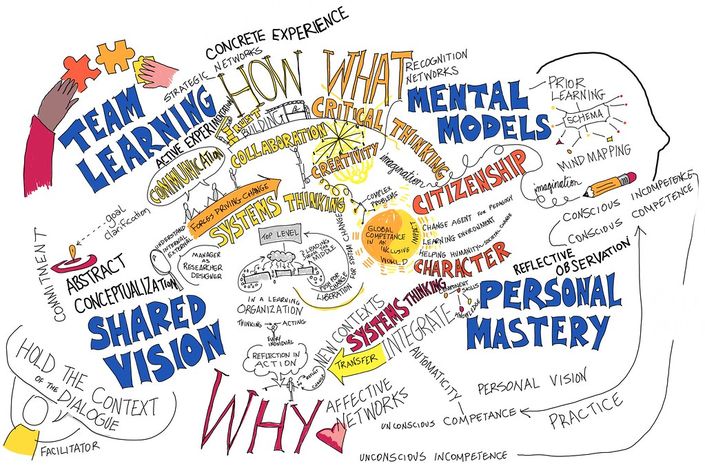 CONCRETE EXPERIENCE
STRATEGIC
NETWORKS
HOW
WHAT
RECOGNITION
NETWORKS
TEAM
LEARNING
ACTIVE EXPERIMENTATION
BUILDING
COLLABORATION
COMMUNICATION
CRITICAL THINKING
CREATIVITY
imagination
MENTAL
MODELS
PRIOR
LEARNING
SCHEMA
MIND MAPPING
imagination
CITIZENSHIP
CONSCIOUS INCOMPETENCE
CONSCIOUS COMPETENCE
FORCES DRIVING CHANGE
SYSTEMS THINKING
COMPLEX
PROBLEMS
GLOBAL
COMPETENCE
IN AN
INCLUSIVE
WORLD
IMPACT
CHANGE AGENT FOR PEDAGOGY
LEARNING ENVIRONMENT
HELPING HUMANITY
CHARACTER
REFLECTIVE
OBSERVATION
goal
clarification
COMMITMENT
ABSTRACT
CONCEPTUALIZATION
UNDERSTAND
INTERNAL
EXTERNAL
MANAGER
AS
RESEARCHER
DESIGNER
TOP LEVEL
FOR
CHANGE
LIBERATION
IN A LEARNING
ORGANIZATION
THINKING
ACTING
EVERY
INDIVIDUAL
REFLECTION IN
ACTION
SHARED
VISION
NEW CONTEXTS
SYSTEMS THINKING
INTEGRATE
SKILLS
KNOWLEDGE
TRANSFER
AUTOMATICITY
PERSONAL
MASTERY
HOLD THE CONTEXT
OF THE DIALOGUE
FACILITATOR
WHY
AFFECTIVE
NETWORKS
PERSONAL VISION
PRACTICE
UNCONSCIOUS COMPETANCE
UNCONSCIOUS INCOMPETENCE